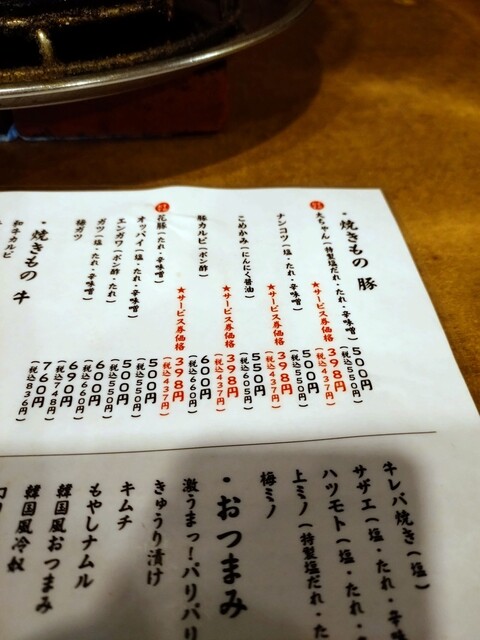 ・焼きもの 豚
大ちゃん(特製塩だれ・たれ・辛味噌)
500円
(税込550円)
★サービス券価格
398円
(税込437円)
ナンコツ(塩・たれ・辛味噌)
500円
(税込550円)
★サービス券価格
398円
(税込437円)
こめかみ(にんにく醤油)
550円
(税込605円)
★サービス券価格
398円
(税込437円)
豚カルビ(ポン酢)
600円
(税込660円)
★サービス券価格
398円
(税込437円)
花豚(たれ・辛味噌)
500円
(税込550円)
オッパイ(塩・たれ・辛味噌)
500円
(税込550円)
エンガワ(ポン酢・たれ)
600円
(税込660円)
ガツ(塩・たれ・辛味噌)
690円
(税込748円)
梅ガツ
760円
(税込836円)
・焼きもの 牛
和牛カルビ
キレバ焼き(塩)
サザエ(塩・たれ・辛味
ハツモト(塩・たれ・
上ミノ(特製塩だれ・た
梅ミノ
・おつまみ
激うまっ!パリパリ
きゅうり漬け
キムチ
もやしナムル
韓国風おつまみ
韓国風冷奴